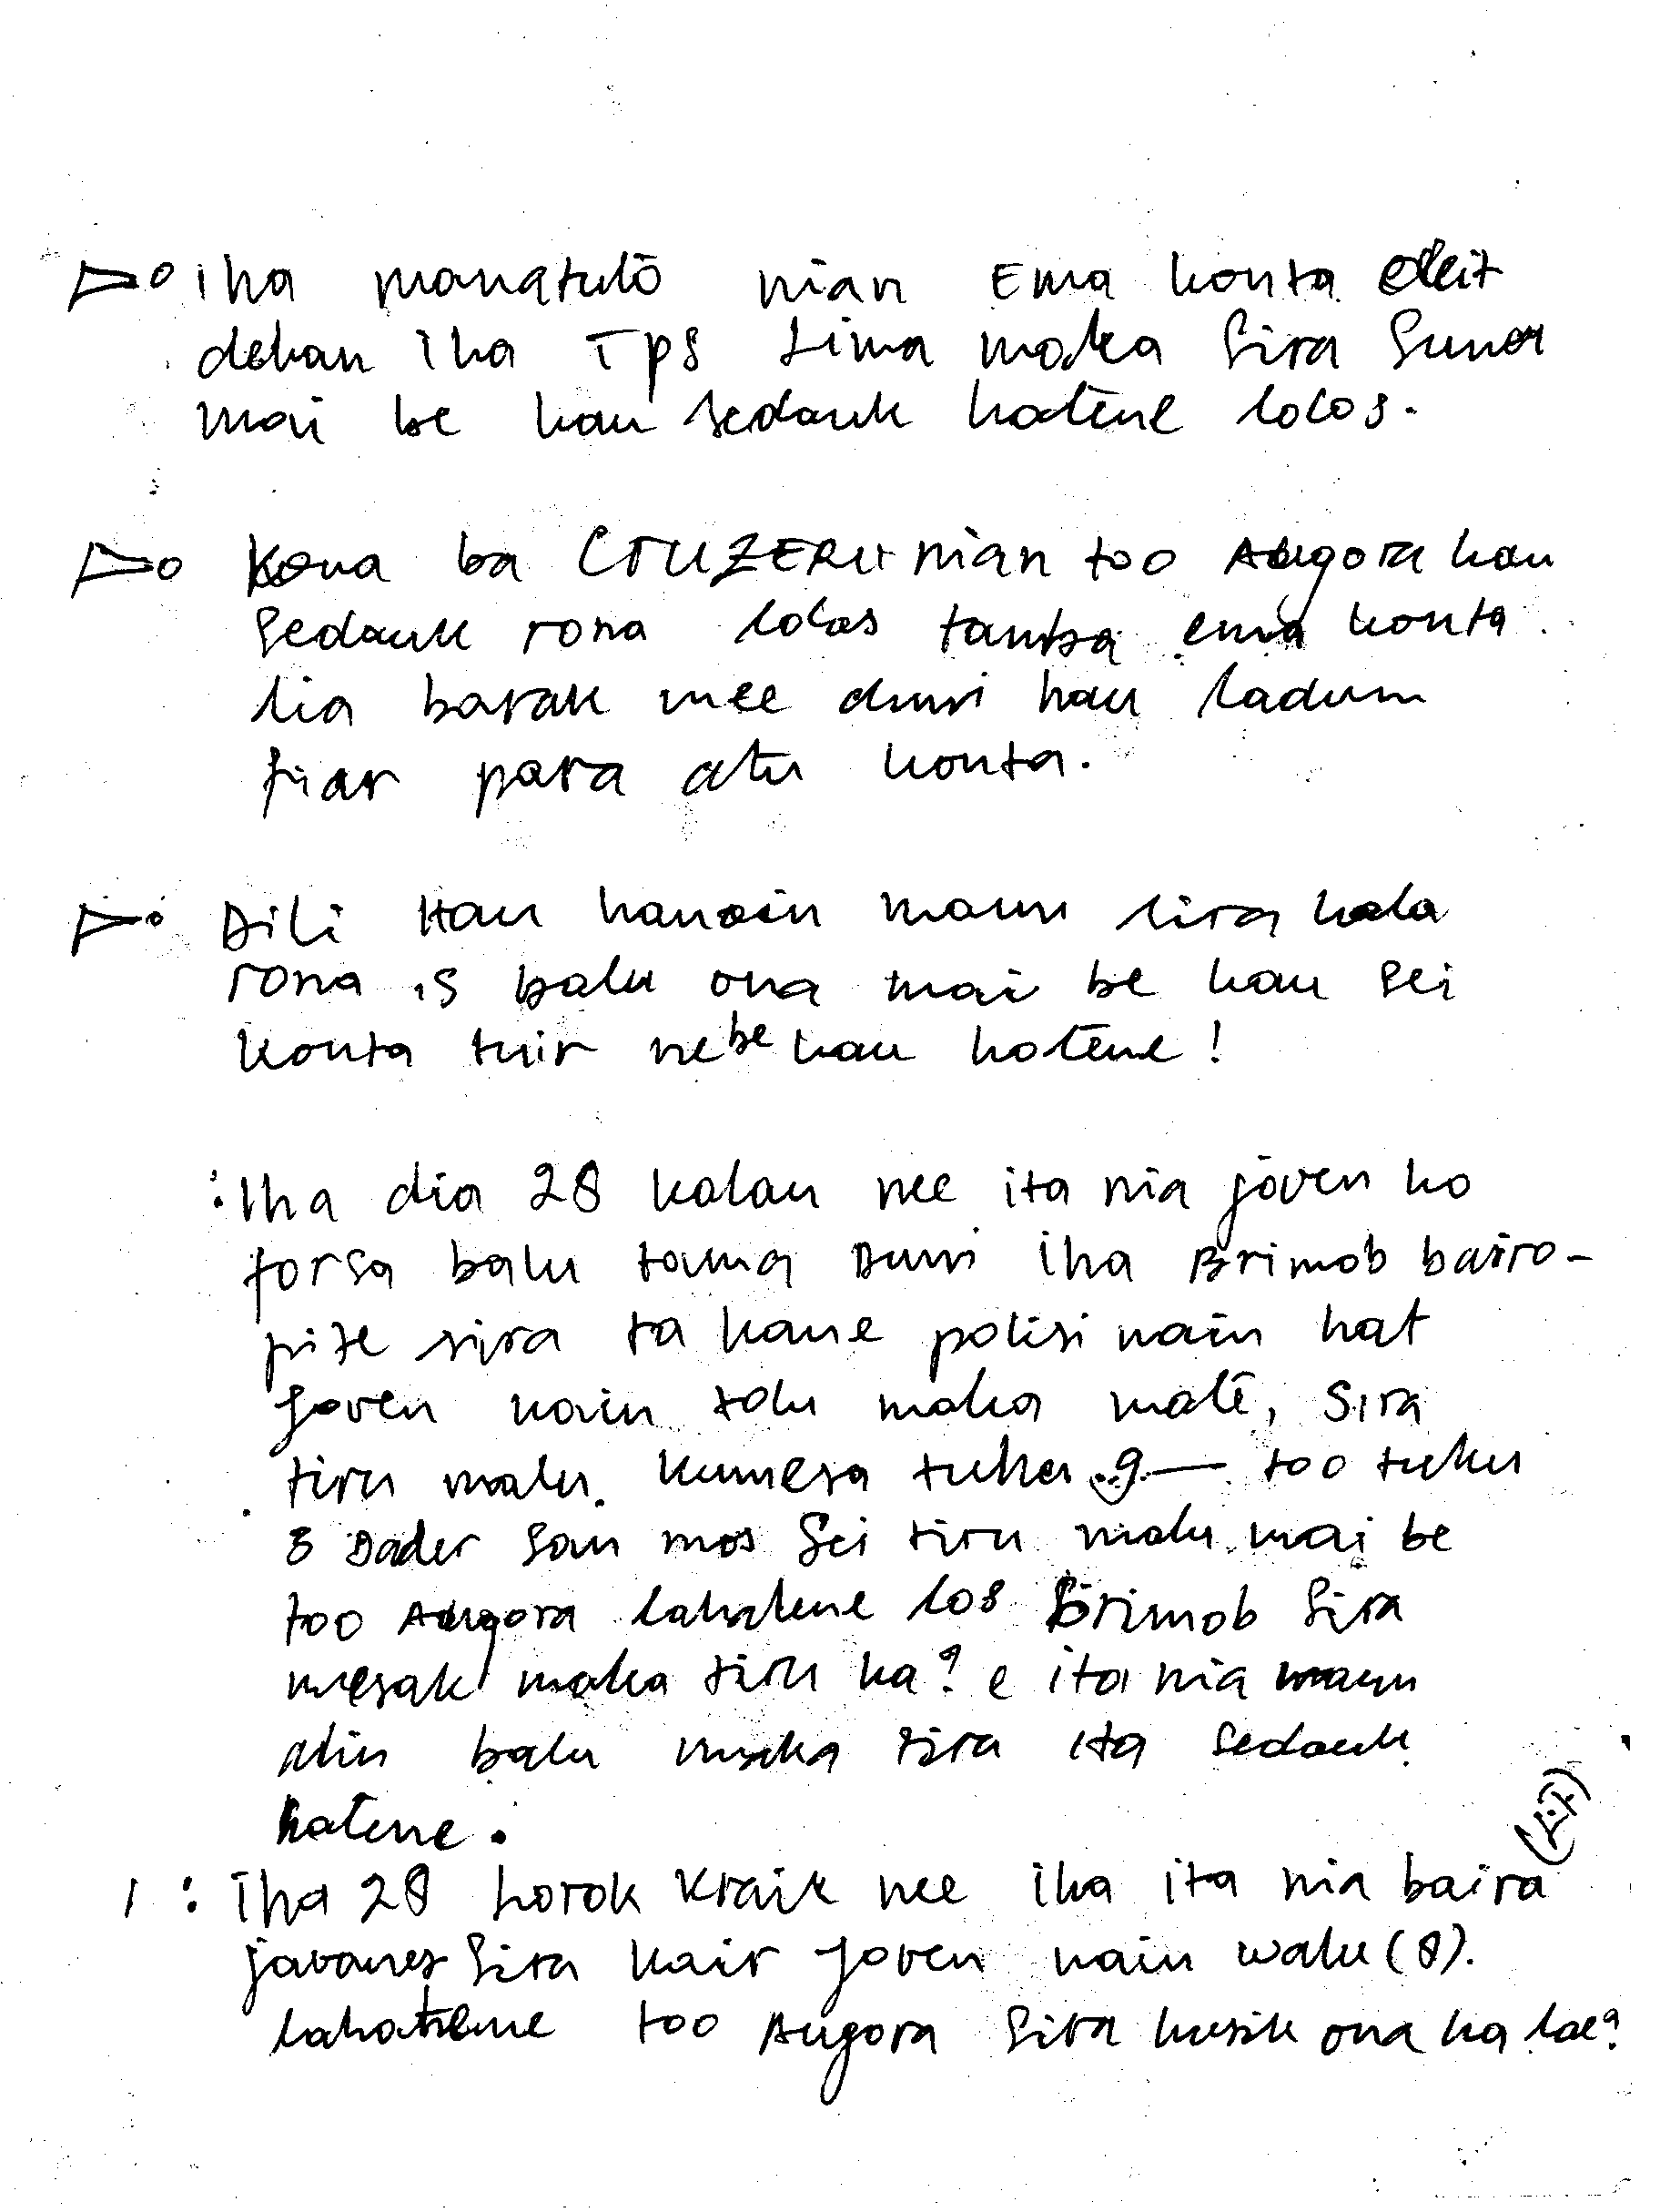 Iha manatuto nian Ema konta deit
dehan iha TPS Lima maka Sira Sunu
mai be hau sedauk hatene lolos.
Kona ba CRUZEIRU nian too Augora hau
sedauk rona lolos tamba ema konta
lia barak mee duni hau ladum
fiar para atu konta.
Dili Hau hanoin maun sira kala
rona is balu ona mai be hau sei
konta tuir nebe hau hatene!
: Iha dia 28 kalan nee ita nia joven ho
forsa balu tama Duni iha Brimob bairo-
pite sira ta kane polisi nain hat
Joven nain tolu maka mate, Sira
tiru malu. kumesa tuku 9 — too tuku
8 Dader San mos Sei tiru malu mai be
too Augora lahatene los Brimob Sira
mesak maka tiru ka? e ita nia maun
alin balu maka tiru ita sedauk
hatene.
1 : Iha 28 lorok kraik nee iha ita nia bairo
javanes Sira kair Joven nain walu (8).
lahatene too Augora Sira husik ona ka lae?